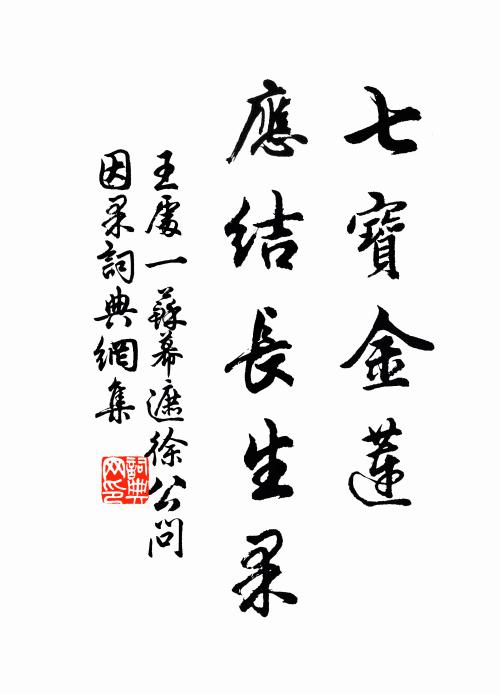 七寶金蓮
應結長生果
王處一蘇幕遮徐公問
因果詞典網集
詞典
网印